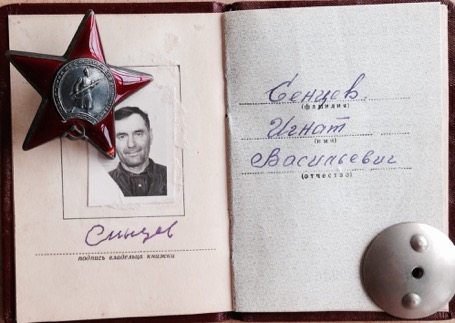 Синцев
подпись владельца книжки
Сенцев.
(фамилия)
Игнат
(имя)
Васильевич
(отчество)